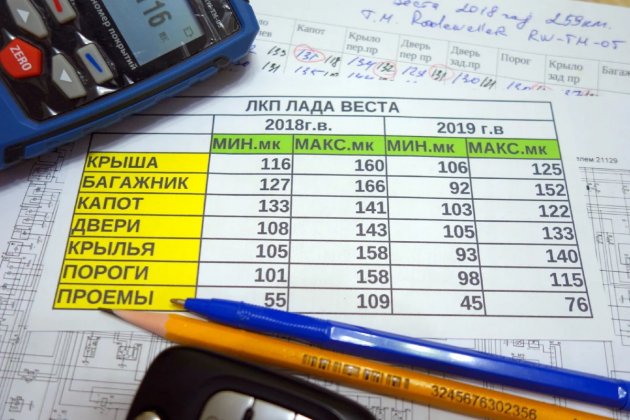 Веста 2018 год 259км.
Т.М. Rodeweller RW-TM-05
Капот
Крыло пер.пр
Дверь пер.пр
Дверь зад.пр
Порог
Крыло зад пр
116
ZERO
номер покрытий
ЛКП ЛАДА ВЕСТА
2018г.в. 2019 г.в
МИН.мк МАКС.мк МИН.мк МАКС.мк
КРЫША 116 160 106 125
БАГАЖНИК 127 166 92 152
КАПОТ 133 141 103 122
ДВЕРИ 108 143 105 133
КРЫЛЬЯ 105 158 93 140
ПОРОГИ 101 158 98 115
ПРОЕМЫ 55 109 45 76
21129
3245676302356